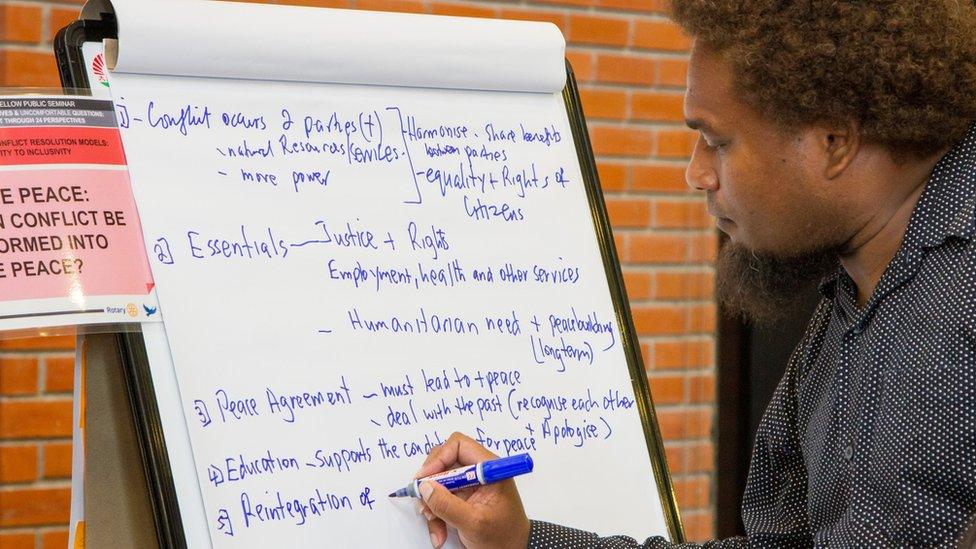 ELLOW PUBLIC SEMINAR
VES & UNCOMFORTABLE QUESTIONS:
T THROUGH 24 PERSPECTIVES
NFLICT RESOLUTION MODELS:
ITY TO INCLUSIVITY
E PEACE:
N CONFLICT BE
ORMED INTO
E PEACE?
Rotary
1) - Conflict occurs 2 parties(+)
- natural Resources/services.
- more power
Harmonise . share benefits
between parties
- equality + Rights of
Citizens
2) Essentials - Justice + Rights
Employment, health and other services
- Humanitarian need + peacebuilding
(longterm)
3) Peace Agreement - must lead to + peace
- deal with the past (recognise each other
+ Apologise)
4) Education - supports the condit for peace
5) Reintegration of